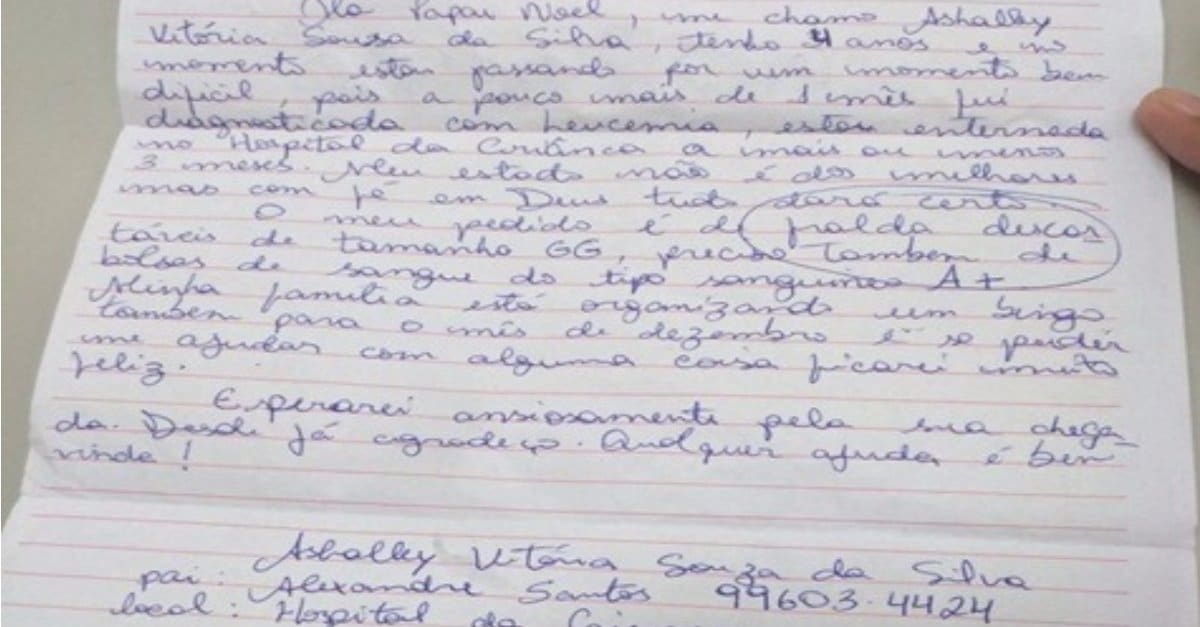 Olá Papai Noel, me chamo Ashalley
Vitória Sousa da Silva, tenho 4 anos e no
momento estou passando por um momento bem
dificil, pois a pouco mais de 1 mês fui
diagnosticada com Leucemia, estou enternada
no Hospital da Criânca a mais ou menos
3 meses. Meu estado não é dos melhores
mas com fé em Deus tudo dará certo.
O meu pedido é de fralda descar
táveis de tamanho GG, preciso também de
bolsas de sangue do tipo sanguíneo A+
Minha família está organizando um bingo
também para o mês de dezembro e se puder
me ajudar com alguma coisa ficarei muito
feliz.
Esperarei ansiosamente pela sua chega
da. Desde já agradeço. Qualquer ajuda é bem
vinda!
Ashalley Vitória Souza da Silva
pai: Alexandre Santos 99603-4424
local: Hospital da